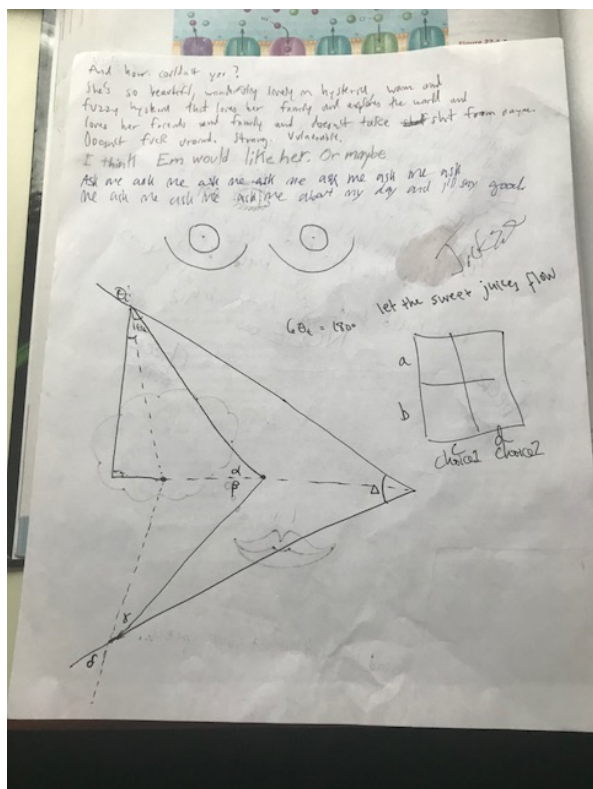 And how couldn't yer?
She's so beautiful, wonderfully lovely on hysteria, warm and
fuzzy hysteria that loves her family and explores the world and
loves her friends and family and doesn't take shit from
Doesn't fuck around. Strong. Vulnerable.
I think Em would like her. Or maybe
Ask me ask me ask me ask me ask me ask me ask
me ask me ask me ask me about my day and I'll say good.
let the sweet juices flow
6θt = 180°
θi
a
b
c
d
choice1 choice2
α
β
Δ
γ
δ